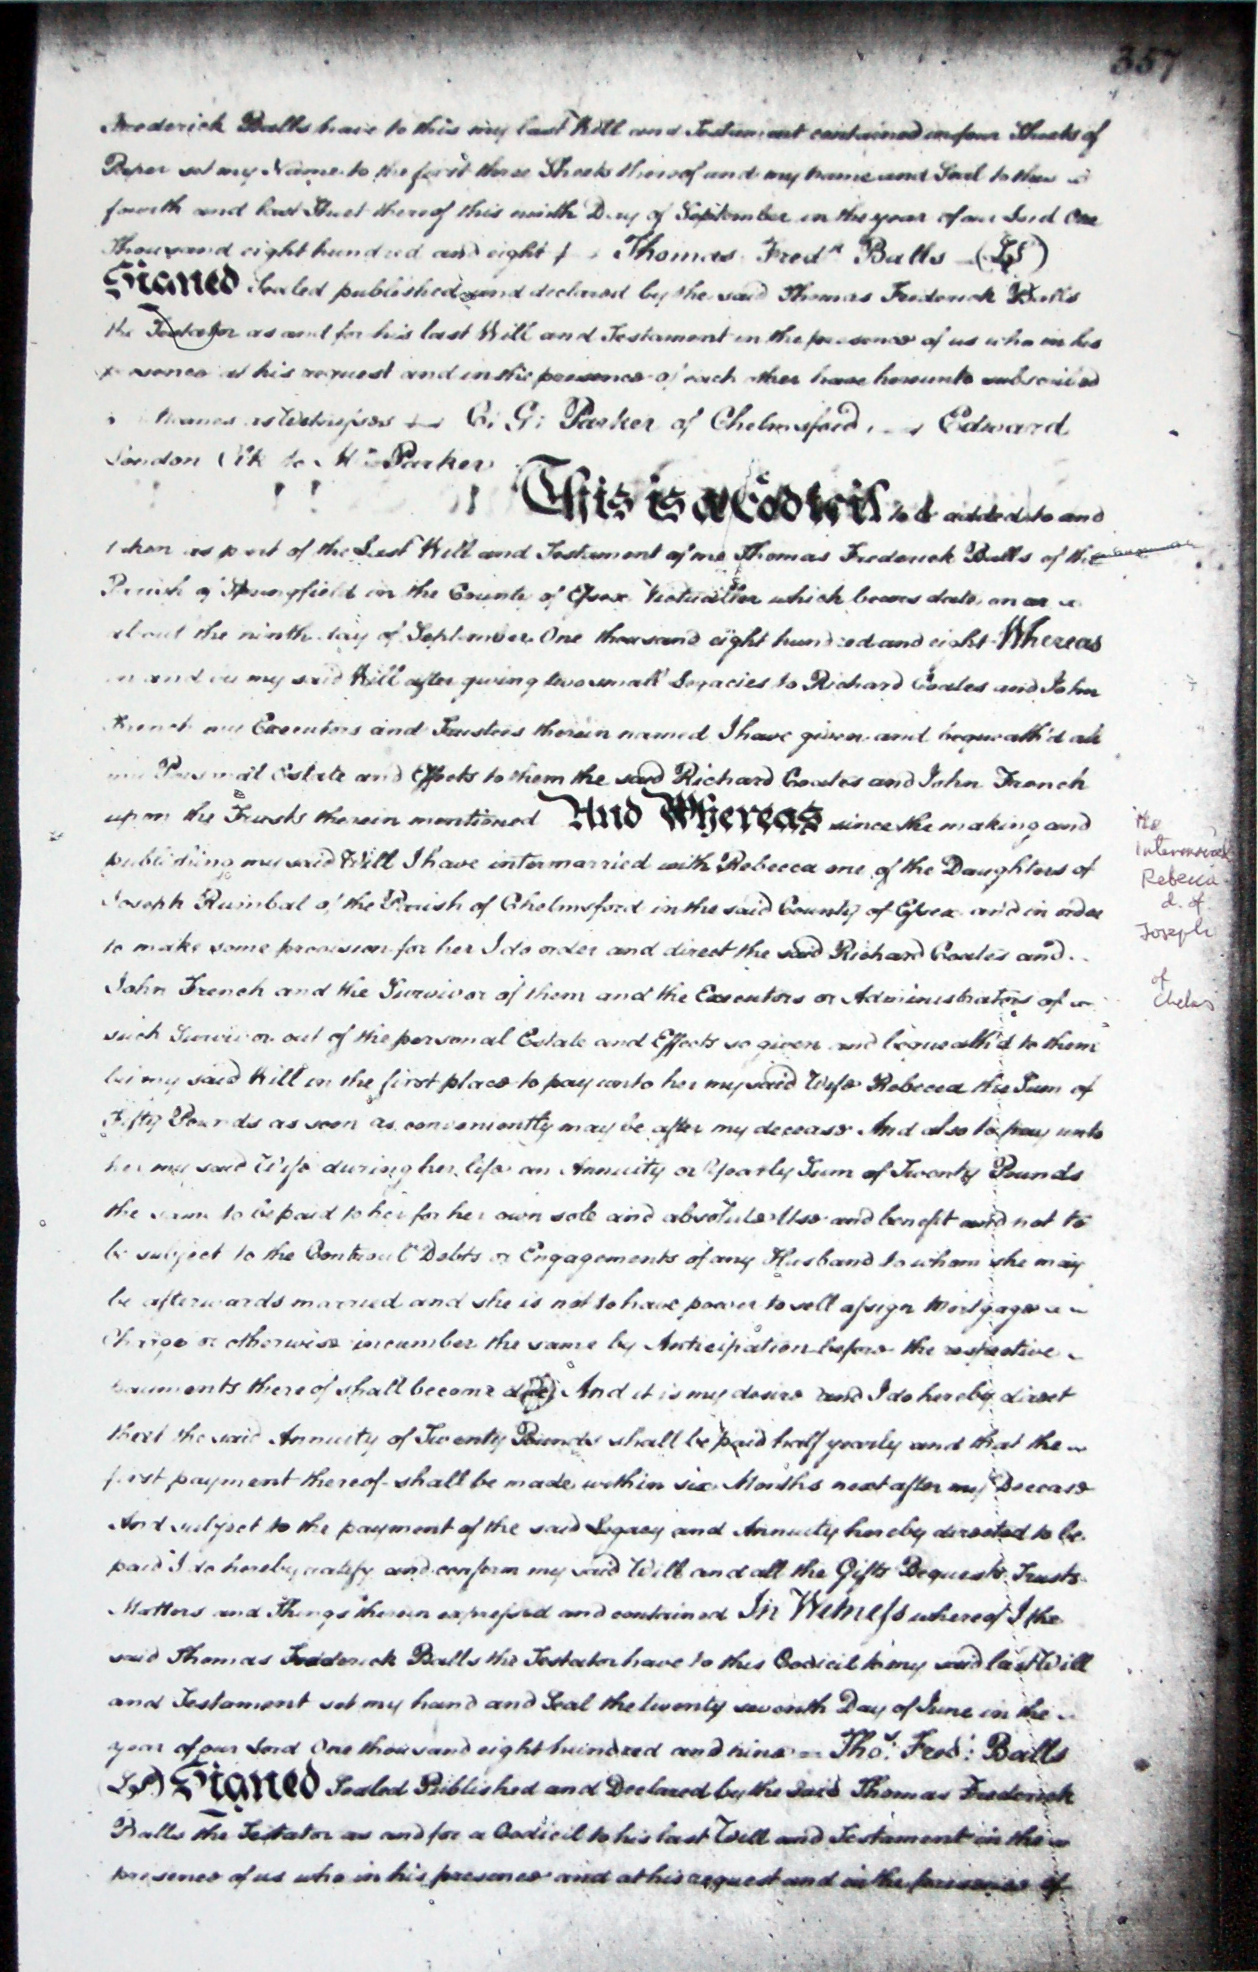 357
Frederick Balls have to this my last Will and Testament contained in four Sheets of
Paper set my Name to the first three Sheets thereof and my name and Seal to this
fourth and last Sheet thereof this ninth Day of September in the year of our Lord One
Thousand eight hundred and eight Thomas Fredk Balls (LS)
Signed Sealed published and declared by the said Thomas Frederick Balls
the Testator as and for his last Will and Testament in the presence of us who in his
presence at his request and in the presence of each other have hereunto subscribed
names as Witnesses C: G: Parker of Chelmsford Edward
London Clk to Mr Parker
This is a Codicil to be added to and
taken as part of the Last Will and Testament of me Thomas Frederick Balls of the
Parish of Springfield in the County of Essex Victualler which bears date on or
about the ninth day of September One thousand eight hundred and eight Whereas
in and by my said Will after giving two small Legacies to Richard Coales and John
French my Executors and Trustees therein named I have given and bequeath'd all
my Personal Estate and Effects to them the said Richard Coales and John French
upon the Trusts therein mentioned And Whereas since the making and
publishing my said Will I have intermarried with Rebecca one of the Daughters of
Joseph Rumbal of the Parish of Chelmsford in the said County of Essex and in order
to make some provision for her I do order and direct the said Richard Coales and
John French and the Survivor of them and the Executors or Administrators of
such Survivor out of the personal Estate and Effects so given and bequeath'd to them
by my said Will in the first place to pay unto her my said Wife Rebecca the Sum of
Fifty Pounds as soon as conveniently may be after my decease And also to pay unto
her my said Wife during her life an Annuity or Yearly Sum of Twenty Pounds
the same to be paid to her for her own sole and absolute Use and benefit and not to
be subject to the Controul Debts or Engagements of any Husband to whom she may
be afterwards married and she is not to have power to sell assign Mortgage
Charge or otherwise incumber the same by Anticipation before the respective
payments thereof shall become due And it is my desire and I do hereby direct
that the said Annuity of Twenty Pounds shall be paid half yearly and that the
first payment thereof shall be made within six Months next after my Decease
And subject to the payment of the said Legacy and Annuity hereby directed to be
paid I do hereby ratify and confirm my said Will and all the Gifts Bequests Trusts
Matters and Things therein expressed and contained In Witness whereof I the
said Thomas Frederick Balls the Testator have to this Codicil to my said last Will
and Testament set my hand and Seal the twenty seventh Day of June in the
year of our Lord One thousand eight hundred and nine Thos. Fred: Balls
(LS) Signed Sealed Published and Declared by the said Thomas Frederick
Balls the Testator as and for a Codicil to his last Will and Testament in the
presence of us who in his presence and at his request and in the presence of
He
Intermarried
Rebecca
d. of
Joseph
of
Chelms